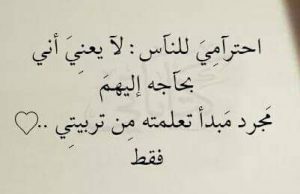 احترآمِيَ للنآس : لآ يعنِيَ أني
بحآجه إليهمَ
مَجرد مَبدأ تعلمته مِن تربيتِي .. ♡
فقط